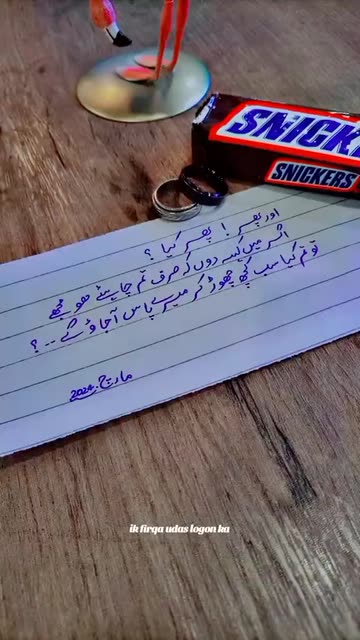 SNICKERS
SNICKERS
اور پھر! پھر کیا؟
اگر میں کہہ دوں کہ صرف تم چاہیئے ہو مجھے
تو تم کیا سب کچھ چھوڑ کر میرے پاس آجاؤ گے --؟
مارچ، 2024
ik firqa udas logon ka